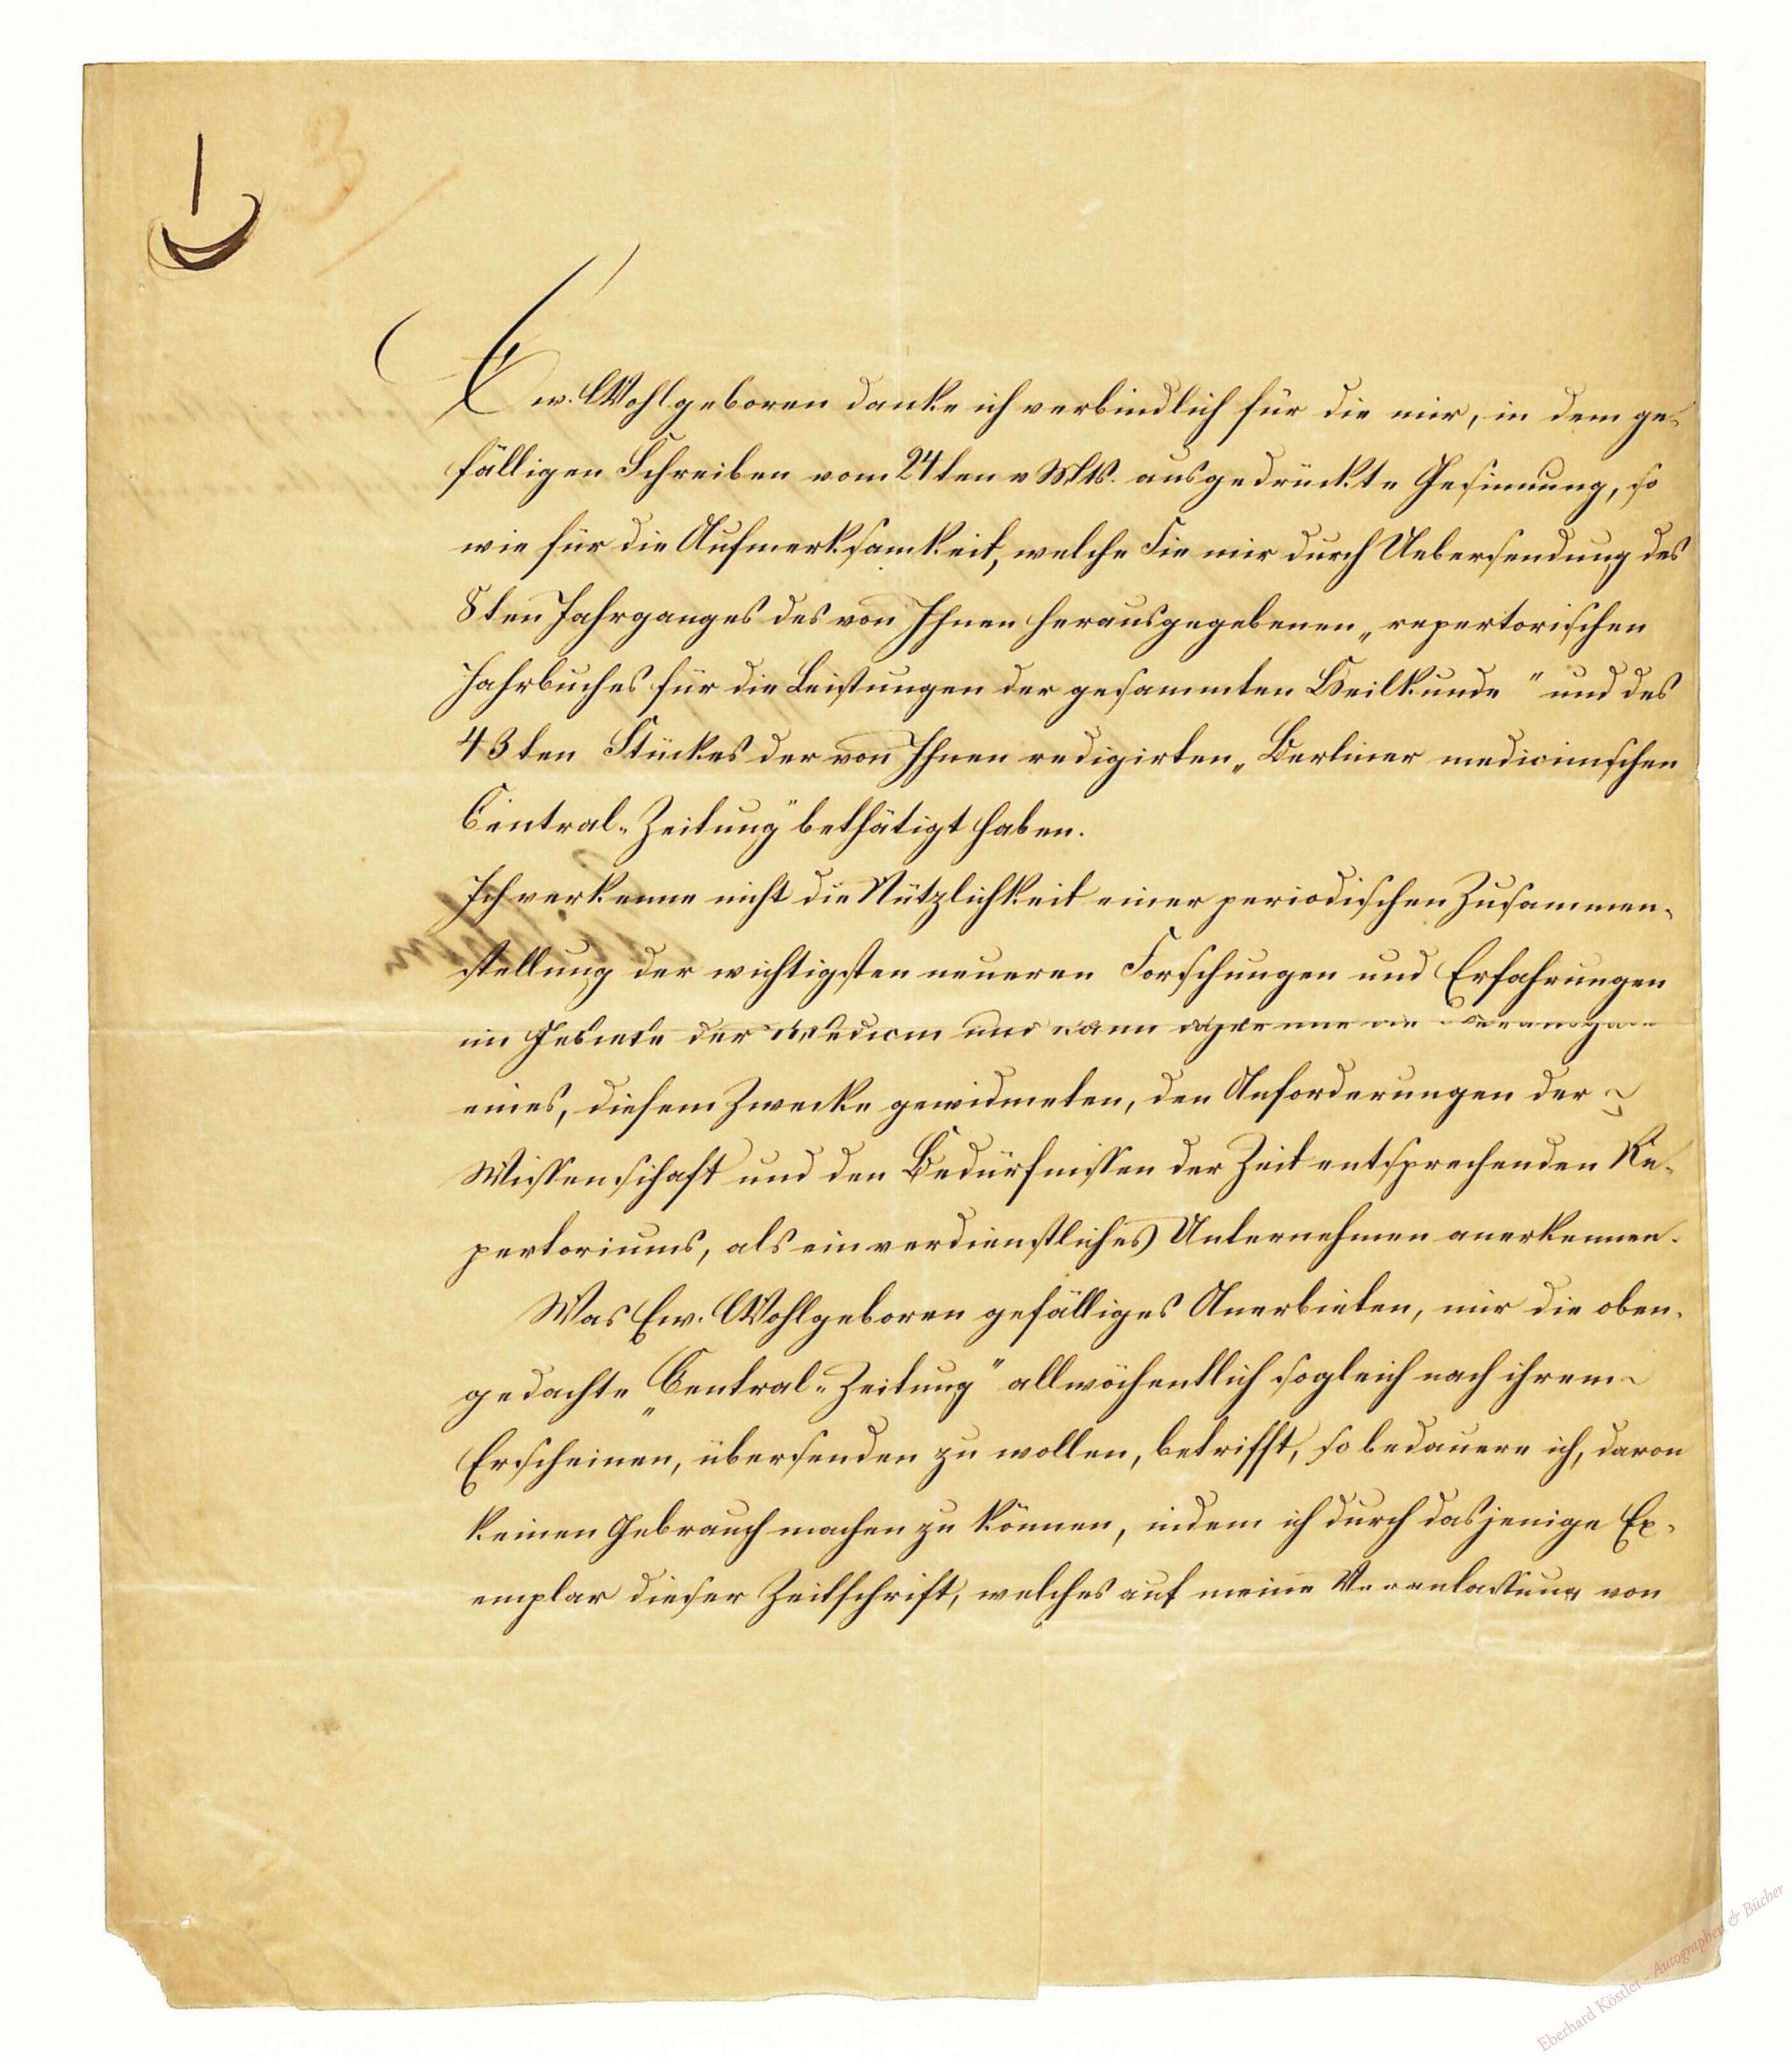 3
Ew. Wohlgeboren danke ich verbindlich für die mir, in dem ge-
fälligen Schreiben vom 24ten v Mts. ausgedrückte Gesinnung, so
wie für die Aufmerksamkeit, welche Sie mir durch Uebersendung des
8ten Jahrganges des von Ihnen herausgegebenen „repertorischen
Jahrbuches für die Leistungen der gesammten Heilkunde" und des
43ten Stückes der von Ihnen redigirten „Berliner medicinischen
Central-Zeitung" bethätigt haben.
Ich verkenne nicht die Nützlichkeit einer periodischen Zusammen-
stellung der wichtigsten neueren Forschungen und Erfahrungen
im Gebiete der Medicin und kann
eines, diesem Zwecke gewidmeten, den Anforderungen der
Wissenschaft und den Bedürfnissen der Zeit entsprechenden Re-
pertoriums, als ein verdienstliches Unternehmen anerkennen.
Was Ew. Wohlgeboren gefälliges Anerbieten, mir die oben-
gedachte „Central-Zeitung" allwöchentlich sogleich nach ihrem
Erscheinen, übersenden zu wollen, betrifft, so bedauere ich, davon
keinen Gebrauch machen zu können, indem ich durch dasjenige Ex-
emplar dieser Zeitschrift, welches auf meine Veranlassung von
Eberhard Köstler - Autographen & Bücher